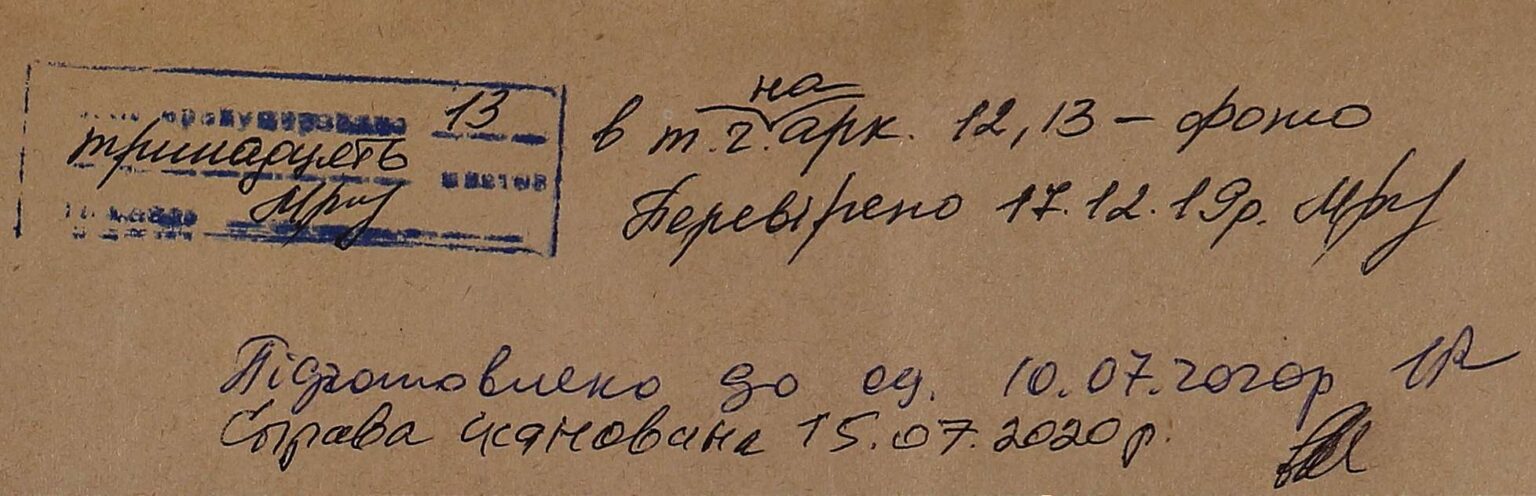 пронумеровано 13
тринадцять
листов
в т.ч. на арк. 12, 13 – фото
Перевірено 17.12.19р.
Підготовлено до од. 10.07.2020р
Справа сканована 15.07.2020р.